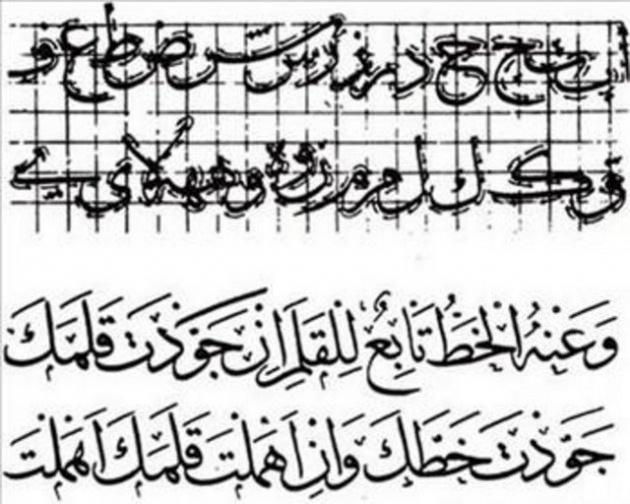 ج ح خ د ر ز س ش ص ط ع و
ق ك ل م و ن و ه لا ي ے
وَعَنْهُ الْخَطُّ تَابِعٌ لِلْقَلَمِ اِنْ جَوَّدْتَ قَلَمَكَ
جَوَّدْتَ خَطَّكَ وَاِنْ اَهْمَلْتَ قَلَمَكَ اَهْمَلْتَ